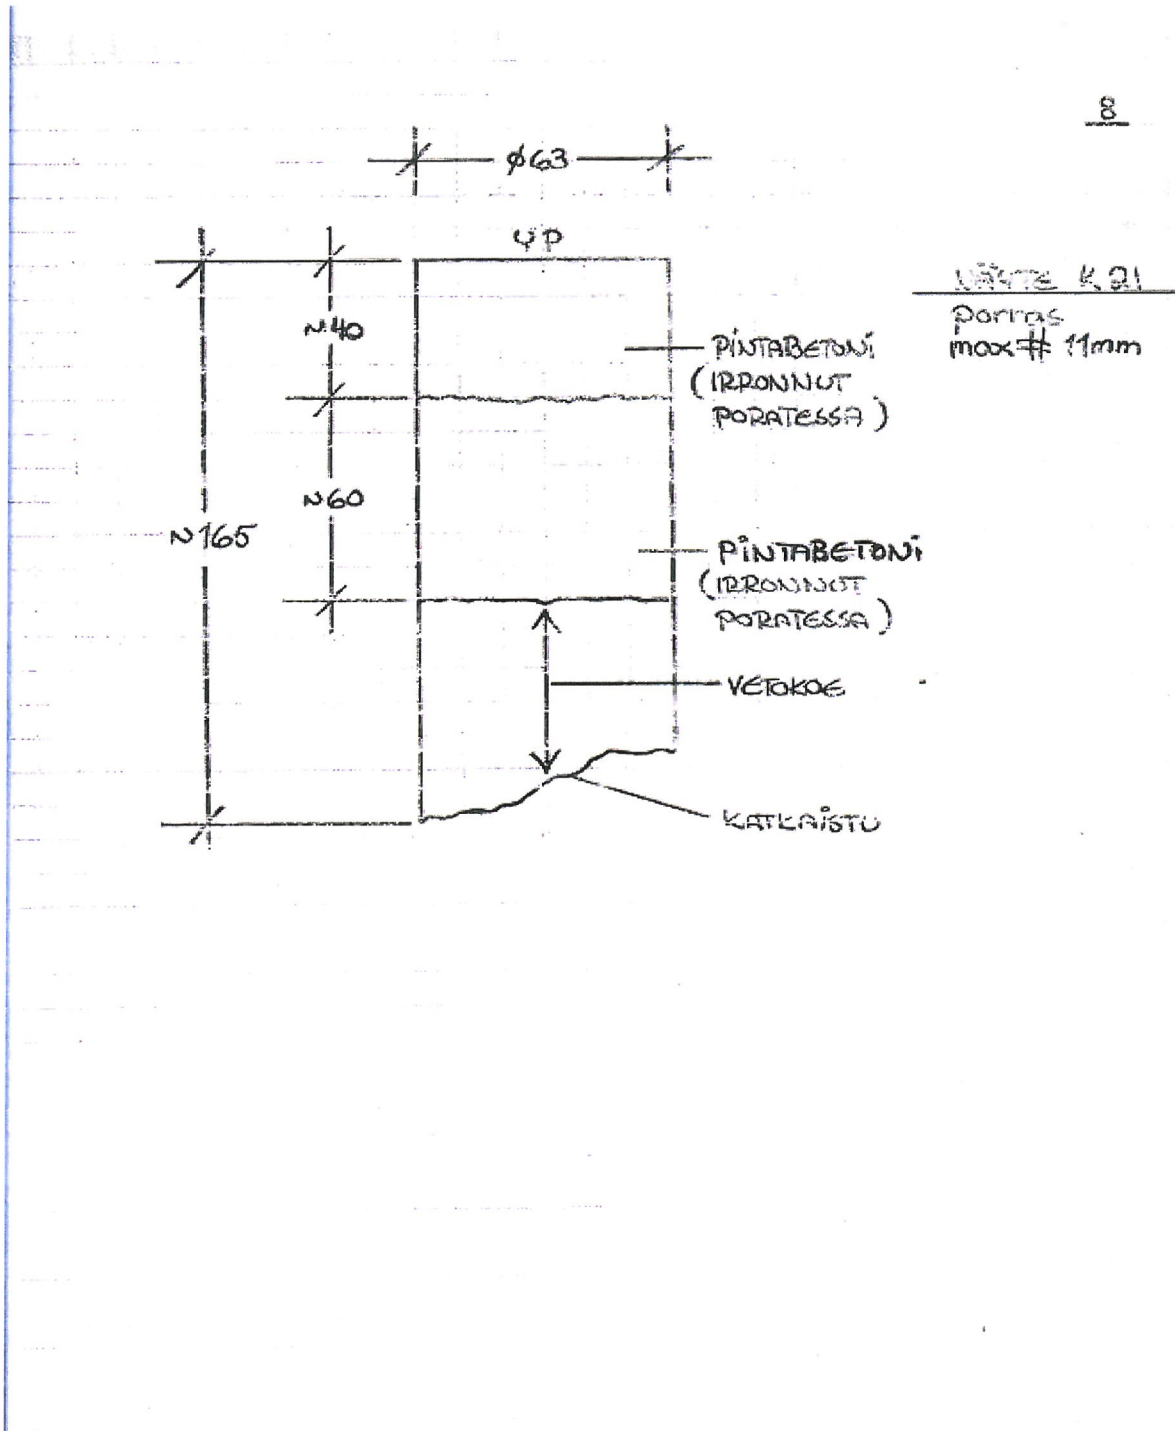 8
ø63
YP
NÄYTE K21
porras
max # 11mm
~40
PINTABETONI
(IRRONNUT
PORATESSA)
~60
~165
PINTABETONI
(IRRONNUT
PORATESSA)
VETOKOE
KATKAISTU